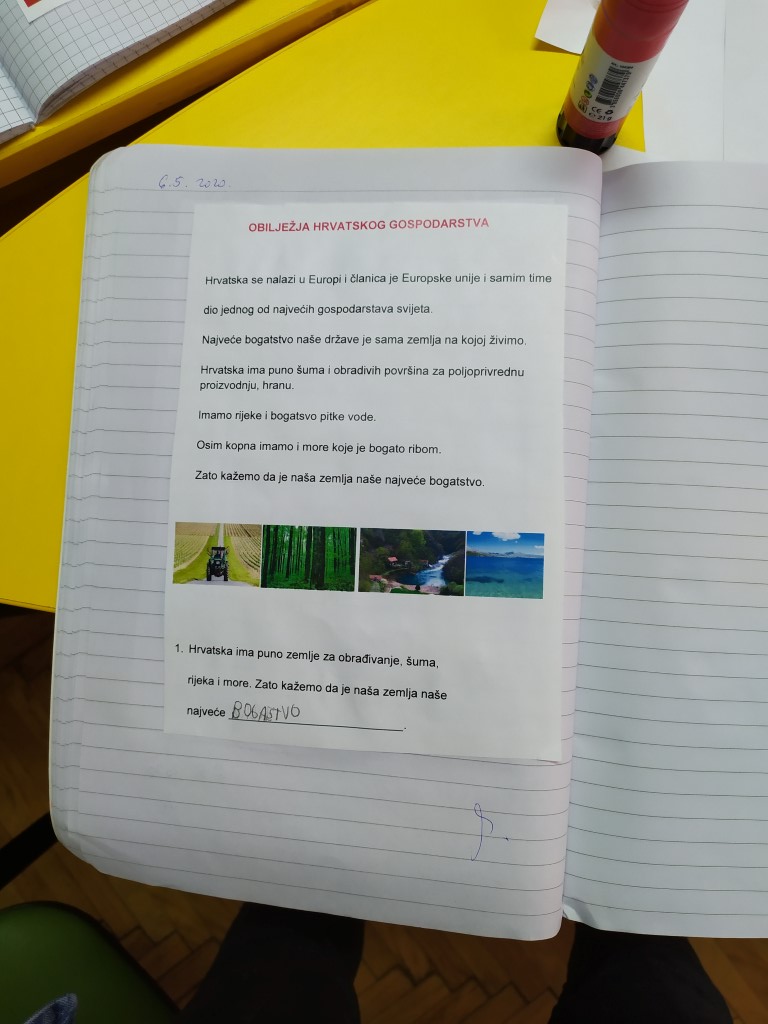 6.5. 2020.
OBILJEŽJA HRVATSKOG GOSPODARSTVA
Hrvatska se nalazi u Europi i članica je Europske unije i samim time
dio jednog od najvećih gospodarstava svijeta.
Najveće bogatstvo naše države je sama zemlja na kojoj živimo.
Hrvatska ima puno šuma i obradivih površina za poljoprivrednu
proizvodnju, hranu.
Imamo rijeke i bogatsvo pitke vode.
Osim kopna imamo i more koje je bogato ribom.
Zato kažemo da je naša zemlja naše najveće bogatstvo.
1. Hrvatska ima puno zemlje za obrađivanje, šuma,
rijeka i more. Zato kažemo da je naša zemlja naše
najveće BOGASTVO.
CE
21 g